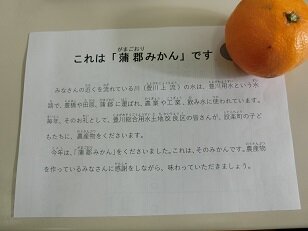 がまごおり
これは「蒲郡みかん」です
みなさんの近くを流れている川（豊川上流）の水は、豊川用水という水
路で、豊橋や田原、蒲郡に運ばれ、農業や工業、飲み水に使われています。
毎年、そのお礼として、豊川総合用水土地改良区の皆さんが、設楽町の子ど
もたちに、農産物をくださいます。
今年は、「蒲郡みかん」をくださいました。これは、そのみかんです。農産物
を作っているみなさんに感謝をしながら、味わっていただきましょう。